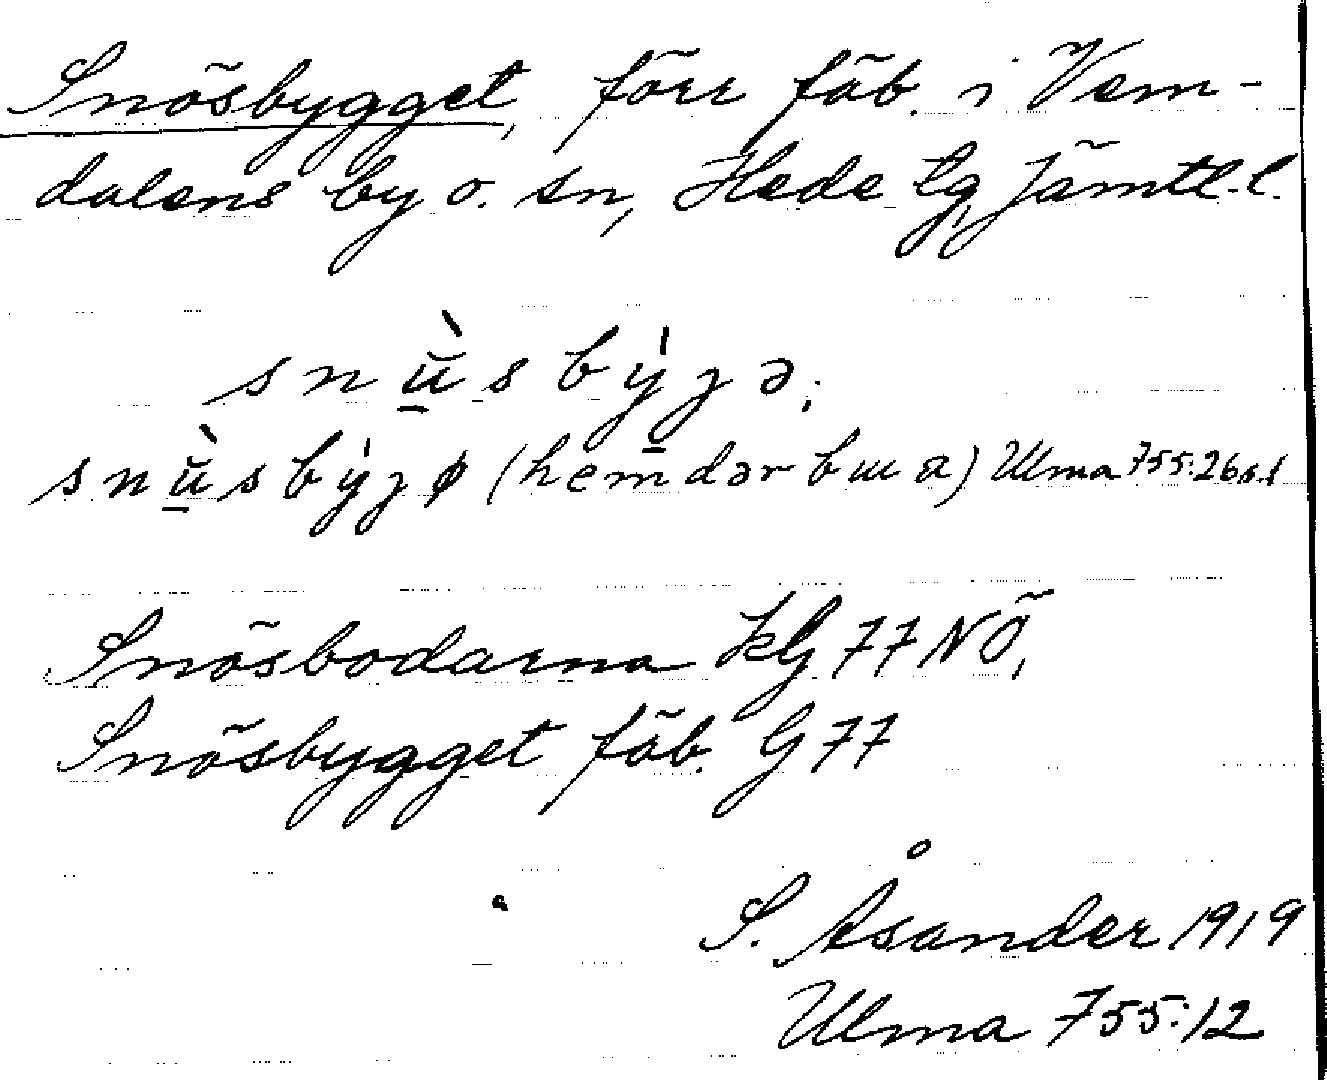 Snösbygget, förr fäb. i Vem-
dalens by o. sn, Hede tg, Jämtl. l.
snùsbýʒə;
snùsbýʒø (hem̄dər bɯa) Ulma 755:26 s.1
Snösbodarna KG 77 NÖ,
Snösbygget fäb. G 77
S. Åsander 1919
Ulma 755:12